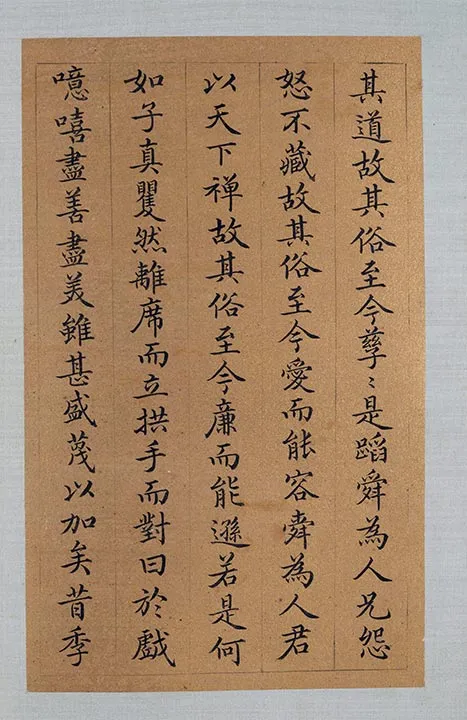 其道故其俗至今孳〻是蹈舜為人兄怨
怒不藏故其俗至今愛而能容舜為人君
以天下禅故其俗至今廉而能遜若是何
如子真矍然離席而立拱手而對曰於戲
噫嘻盡善盡美雖甚盛蔑以加矣昔季